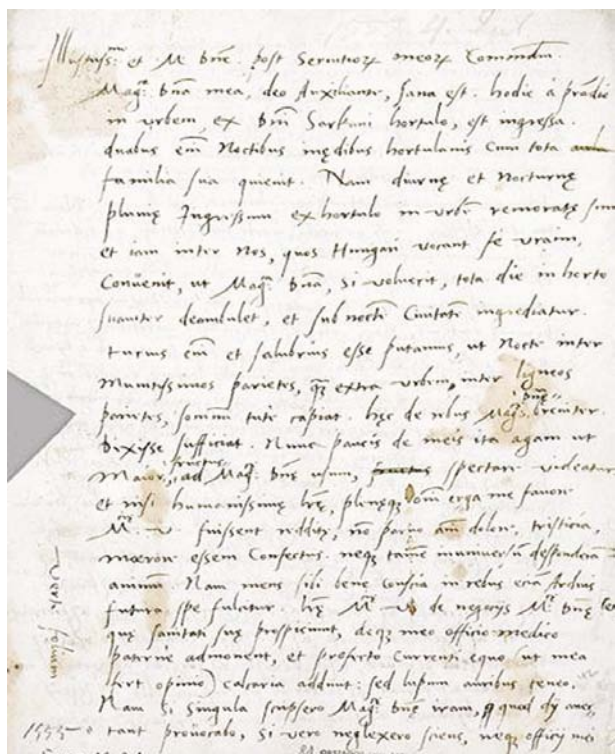 Illustriss: et M. Dne. post Servitiorum meorum Commend:
Mag: Dna mea, deo Auxiliante, sana est. hodie à prandio
in urbem, ex Dni Sarkani hortulo, est ingressa.
duabus enim Noctibus in ędibus hortulanis Cum tota
familia sua quievit. Nam diurnę et Nocturnę
pluvię Ingressum ex hortulo in urbem remoratę sunt
et iam inter Nos, quos Hungari vocant fè vraim,
Convenit, ut Mag: Dna, Si voluerit, tota die in horto
suaviter deambulet, et sub noctem Civitatem ingrediatur.
tutius enim et salubrius esse putamus, ut Nocte inter
Munitissimos parietes, quam extra urbem, inter ligneos
parietes, somnum tutè capiat. hęc de rebus Mag: Dnę breviter
Dixisse sufficiat. Nunc paucis de meis ita agam ut
Maior fructus, ad Mag: Dnę usum, spectare videatur
et nisi humanissimę lrę, plenęq; omni erga me favore
M: V. fuissent redditę, non parvo animi dolore, tristicia,
mœrore essem Confectus. neq; tamen in universum despondera
animum. Nam mens sibi bene conscia in rebus etiam Arduis
futura spe fulcitur. lrę M: V. de negocijs M: Dnę
quę sanitati suę prospiciunt, deq; meo officio medico
paternè admonent, et profecto Currenti equo (ut mea
fert opinio) calcaria addunt: sed lupum auribus teneo.
Nam Si Singula scripsero Mag: Dnę iram, quod dij
1555 tant provocabo, Si vero neglexero sciens, neq; officij mei